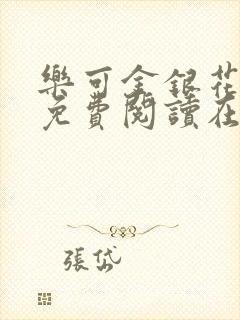 樂可金銀花
免費閱讀在
張岱